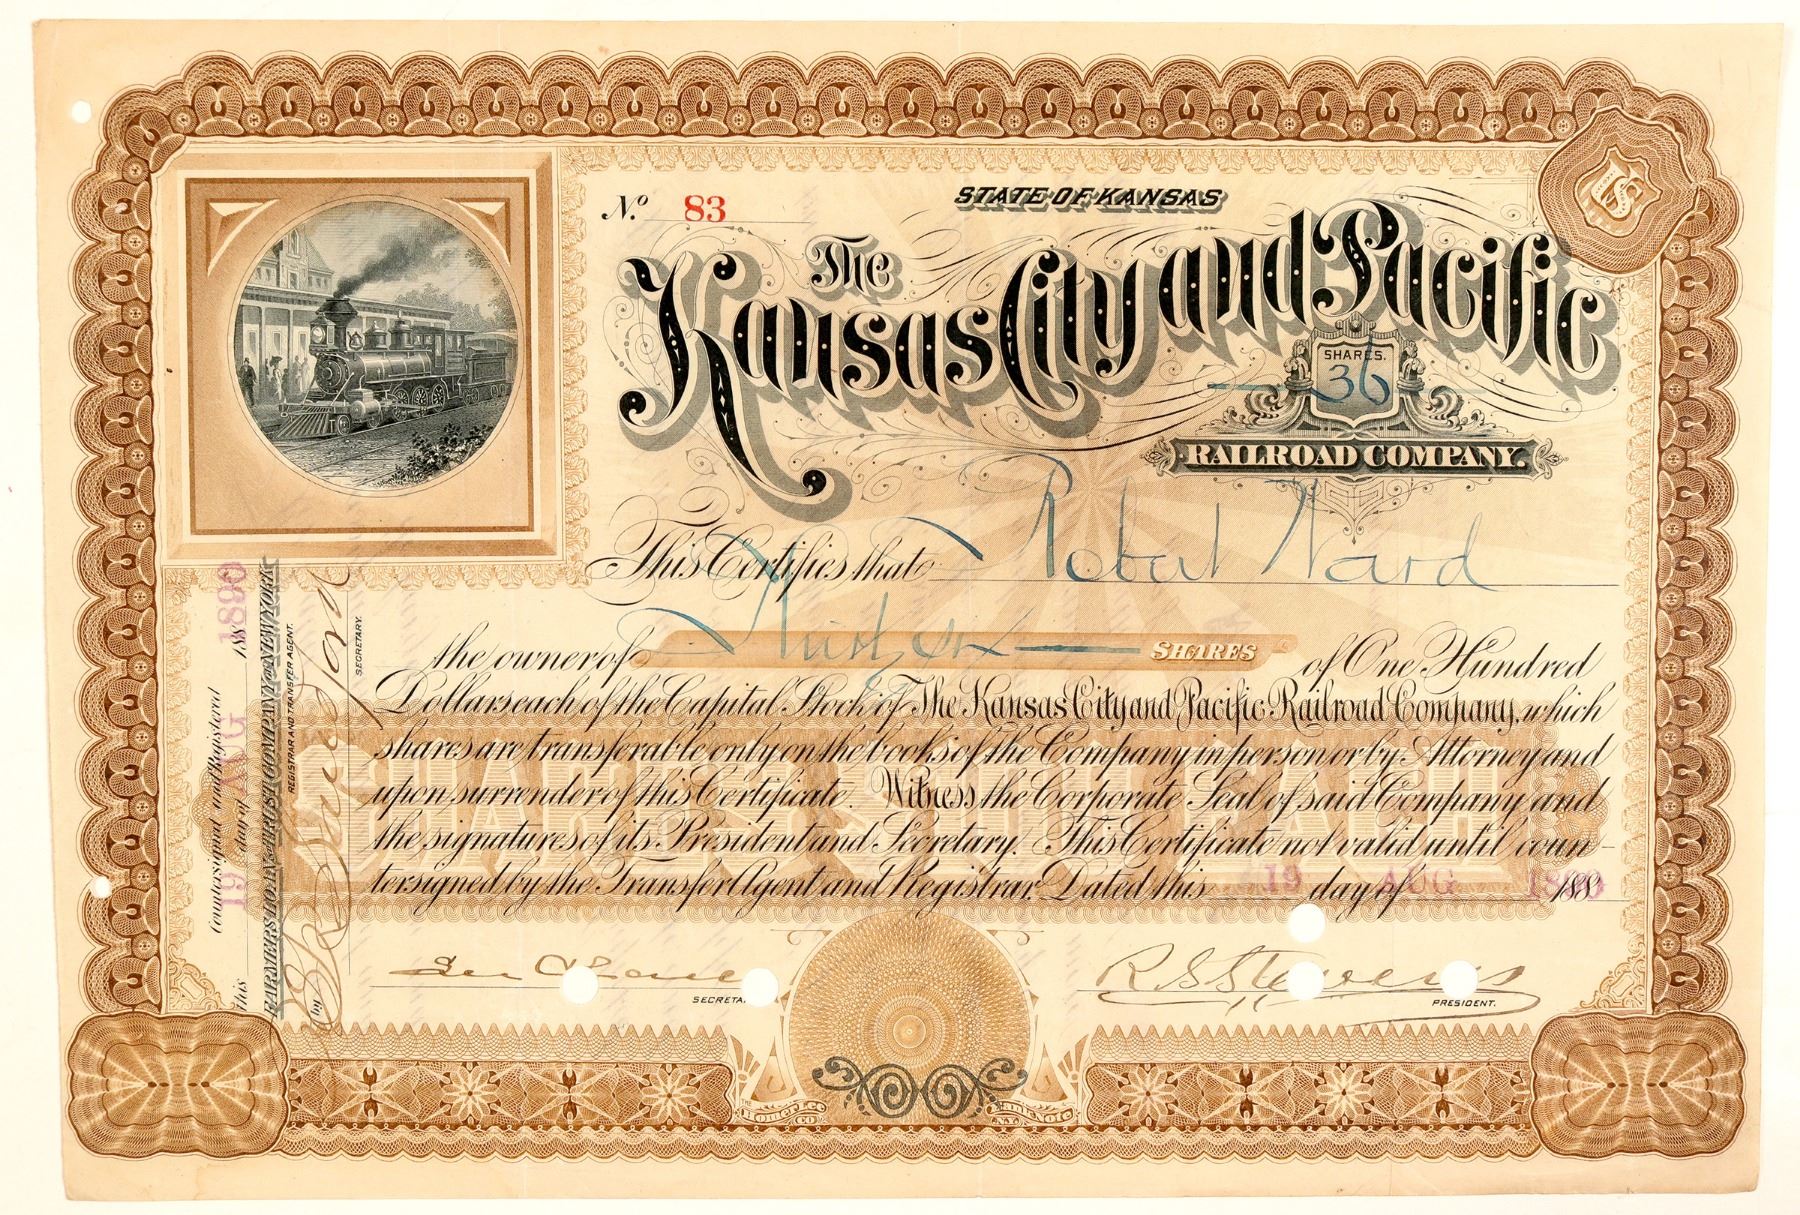 No. 83
STATE OF KANSAS
The
Kansas City and Pacific
SHARES.
36
RAILROAD COMPANY.
This Certifies that Robert Ward
the owner of Thirty six SHARES of One Hundred
Dollars each of the Capital Stock of The Kansas City and Pacific Railroad Company, which
shares are transferable only on the books of the Company in person or by Attorney and
upon surrender of this Certificate. Witness the Corporate Seal of said Company and
the signatures of its President and Secretary. This Certificate not valid until coun-
tersigned by the Transfer Agent and Registrar. Dated this 19 day of AUG 1890
SHARES $100 EACH
R S Stevens
SECRETA
PRESIDENT.
Countersigned and Registered
this 19 day of AUG 1890
FARMERS LOAN & TRUST COMPANY OF NEW YORK
REGISTRAR AND TRANSFER AGENT.
by
SECRETARY.
THE Homer Lee Bank Note CO. N.Y.